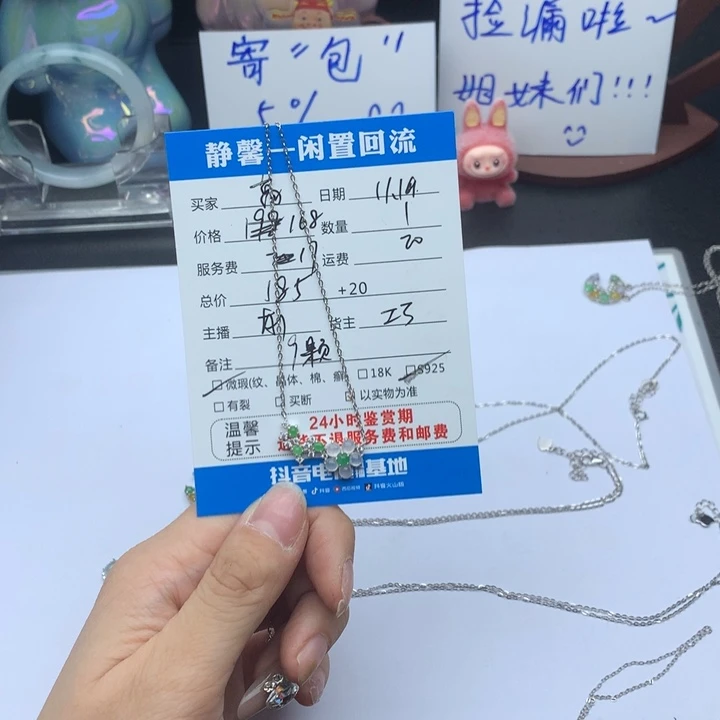 寄"包"
5%
捡漏啦~
姐妹们!!!
静馨—闲置回流
买家 日期 11.19
价格 168 数量 1
服务费 17 运费 20
总价 185 +20
主播 货主
备注 9颗
微瑕(纹、晶体、棉、癣 18K S925
有裂 买断 以实物为准
温馨 24小时鉴赏期
提示 不退服务费和邮费
抖音电 基地
抖音 抖音火山版